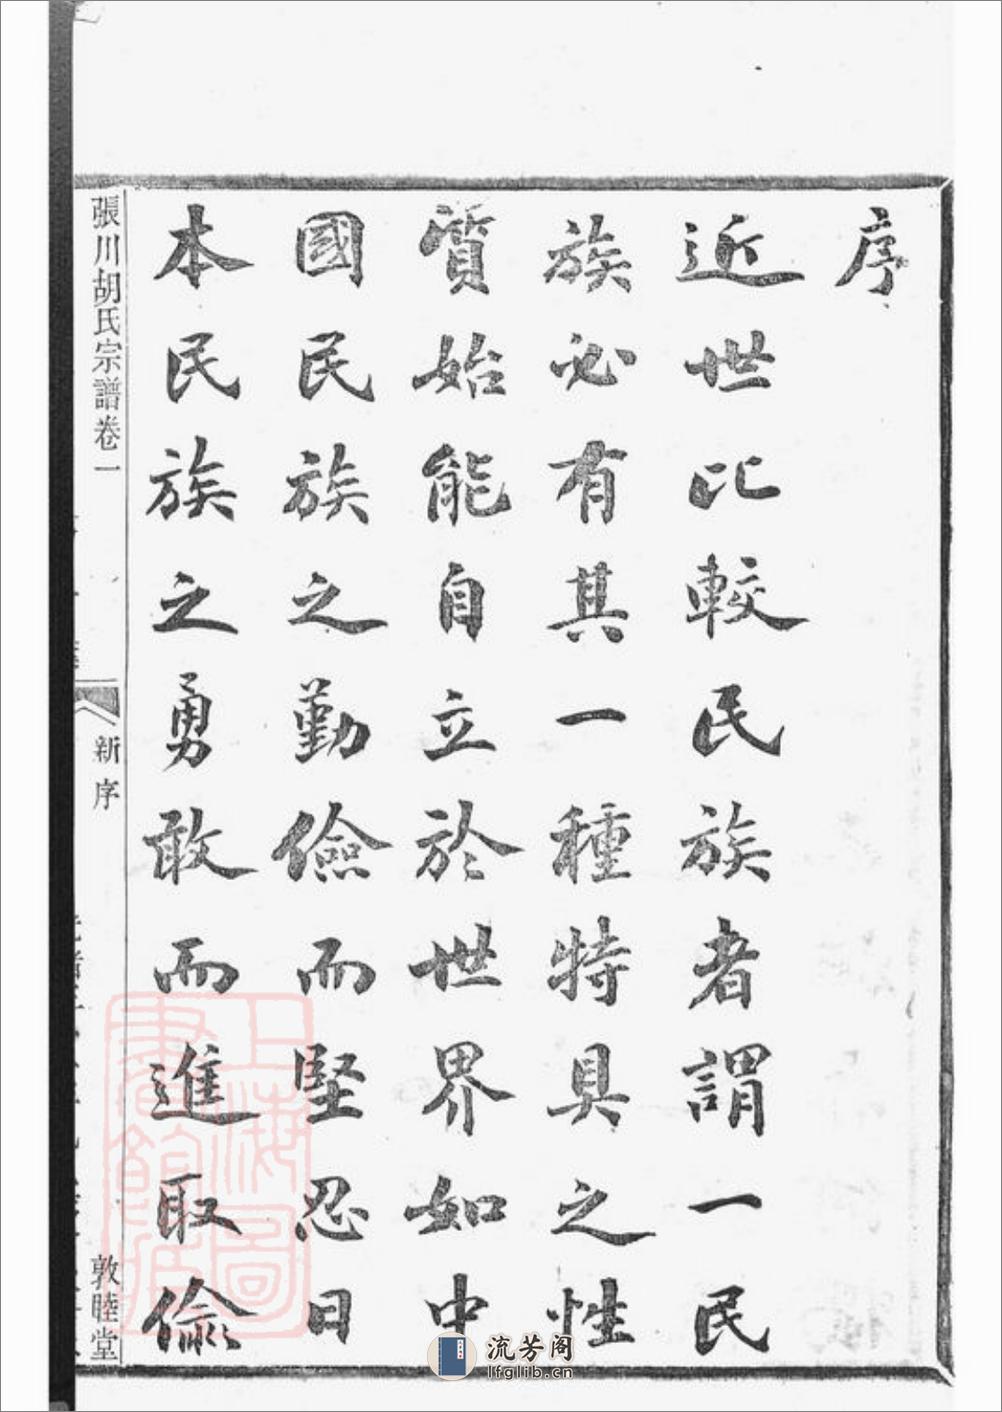 序
近世比較民族者謂一民
族必有其一種特具之性
質始能自立於世界如中
國民族之勤儉而堅忍日
本民族之勇敢而進取儉
張川胡氏宗譜卷一
新序
敦睦堂
上海圖
書館藏
流芳阁
lfglib.cn